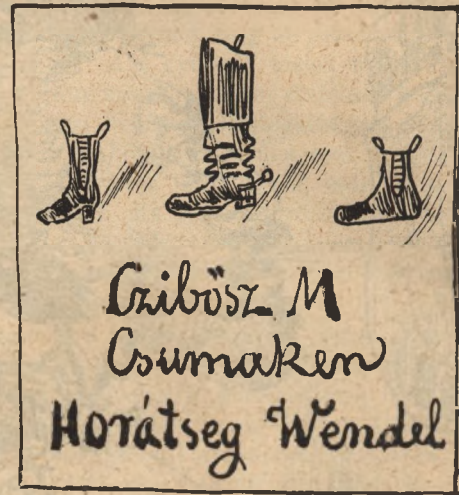 Czibősz M
Csumaken
Horátseg Wendel